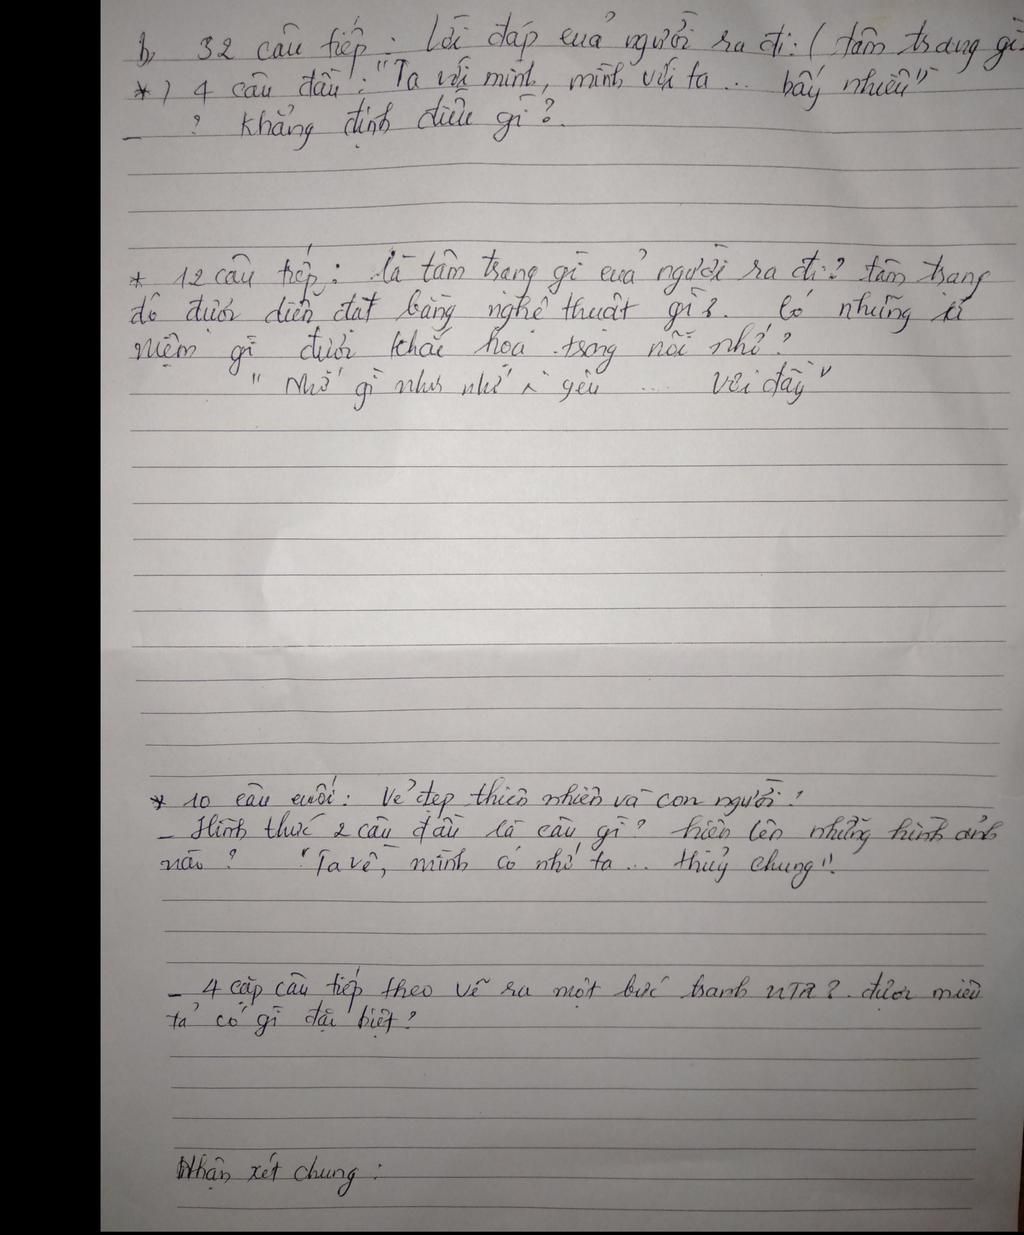 b, 32 câu tiếp: Lời đáp của người ra đi: ( tâm trạng gì
*) 4 câu đầu: "Ta với mình, mình với ta ... bấy nhiêu"
- ? Khẳng định điều gì?
* 12 câu tiếp: là tâm trạng gì của người ra đi? tâm trạng
đó được diễn đạt bằng nghệ thuật gì?. Có những kỉ
niệm gì được khắc họa trong nỗi nhớ?
" Nhớ gì như nhớ n yêu ... vơi đầy"
* 10 câu cuối: Vẻ đẹp thiên nhiên và con người?
- Hình thức 2 câu đầu là câu gì? hiện lên những hình ảnh
nào? "Ta về, mình có nhớ ta ... thủy chung".
- 4 cặp câu tiếp theo vẽ ra một bức tranh NTN?. được miêu
tả có gì đặc biệt?
Nhận xét chung: